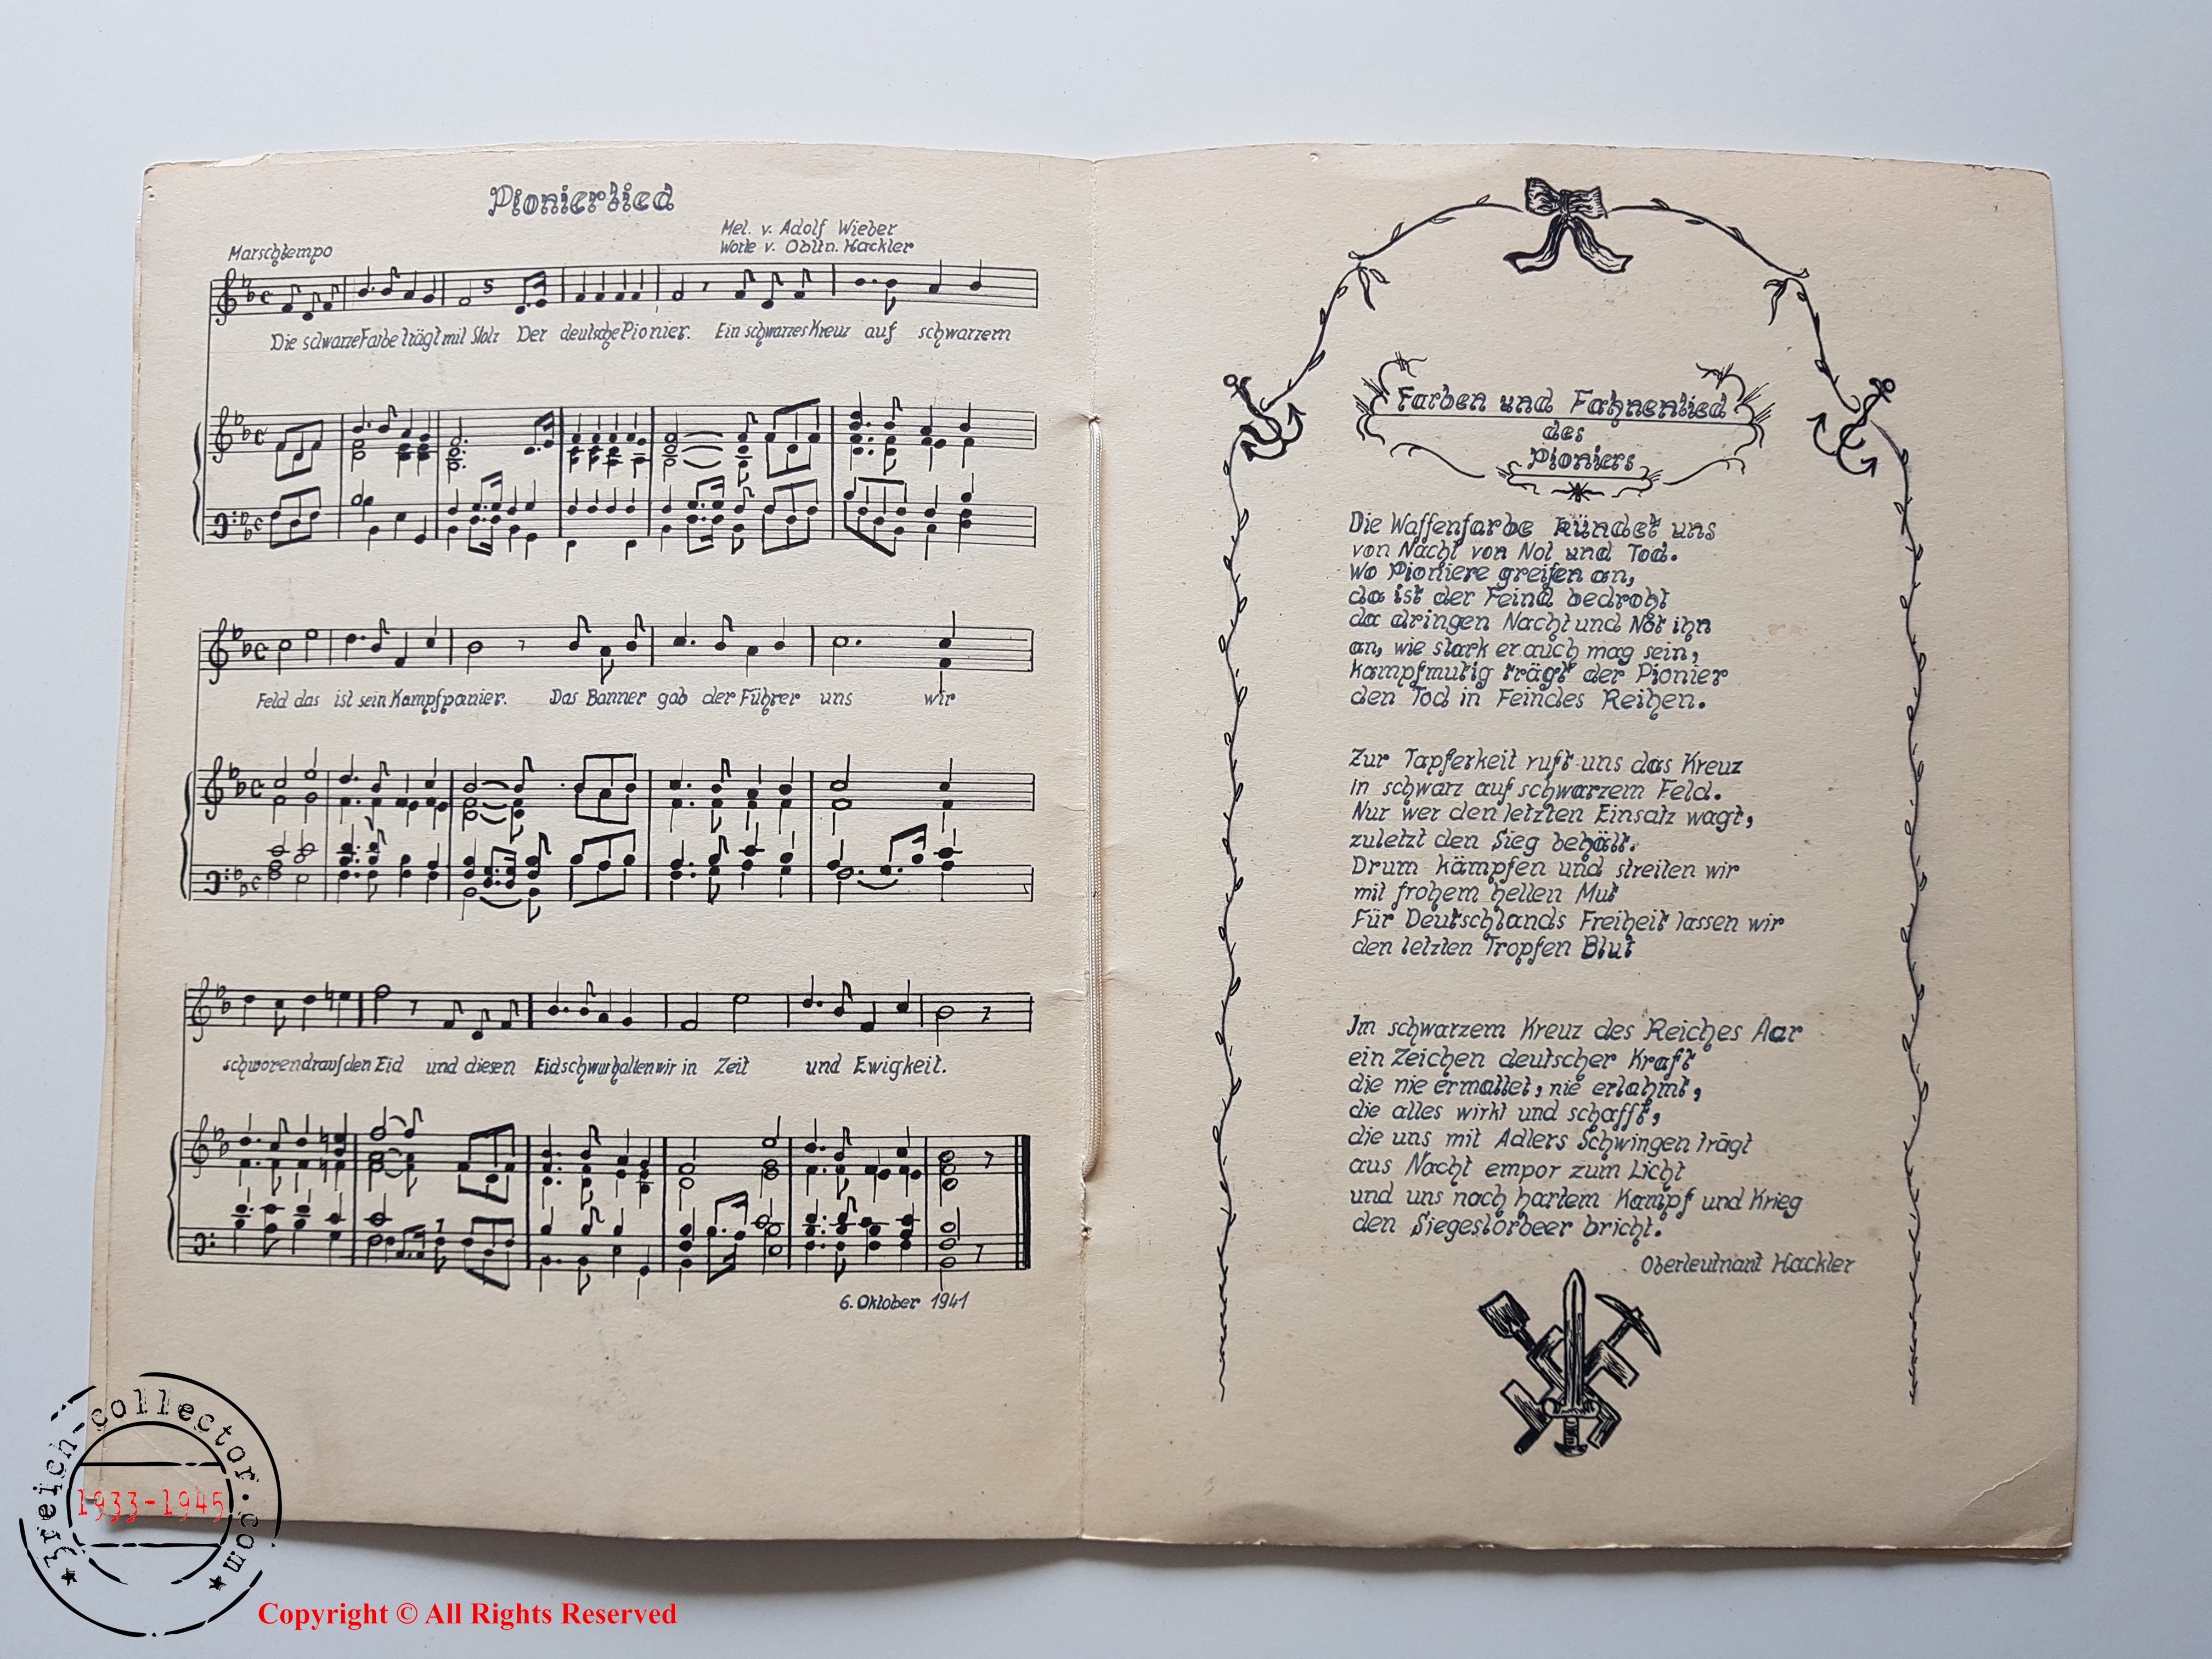 Pionierlied
Mel. v. Adolf Wieber
Worte v. Obltn. Hackler
Marschtempo
Die schwarze Farbe trägt mit Stolz Der deutsche Pionier. Ein schwarzes Kreuz auf schwarzem
Feld das ist sein Kampfpanier. Das Banner gab der Führer uns wir
schworen drauf den Eid und diesen Eidschwur halten wir in Zeit und Ewigkeit.
6. Oktober 1941
Farben und Fahnenlied
des
Pioniers
Die Waffenfarbe kündet uns
von Nacht von Not und Tod.
Wo Pioniere greifen an,
da ist der Feind bedroht
da dringen Nacht und Not ihn
an, wie stark er auch mag sein,
kampfmutig trägt der Pionier
den Tod in Feindes Reihen.
Zur Tapferkeit ruft uns das Kreuz
in schwarz auf schwarzem Feld.
Nur wer den letzten Einsatz wagt,
zuletzt den Sieg behält.
Drum kämpfen und streiten wir
mit frohem hellen Mut
Für Deutschlands Freiheit lassen wir
den letzten Tropfen Blut
Im schwarzem Kreuz des Reiches Aar
ein Zeichen deutscher Kraft
die nie ermattet, nie erlahmt,
die alles wirkt und schafft,
die uns mit Adlers Schwingen trägt
aus Nacht empor zum Licht
und uns nach hartem Kampf und Krieg
den Siegeslorbeer bricht.
Oberleutnant Hackler
3reich-collector.com
1933-1945
Copyright © All Rights Reserved